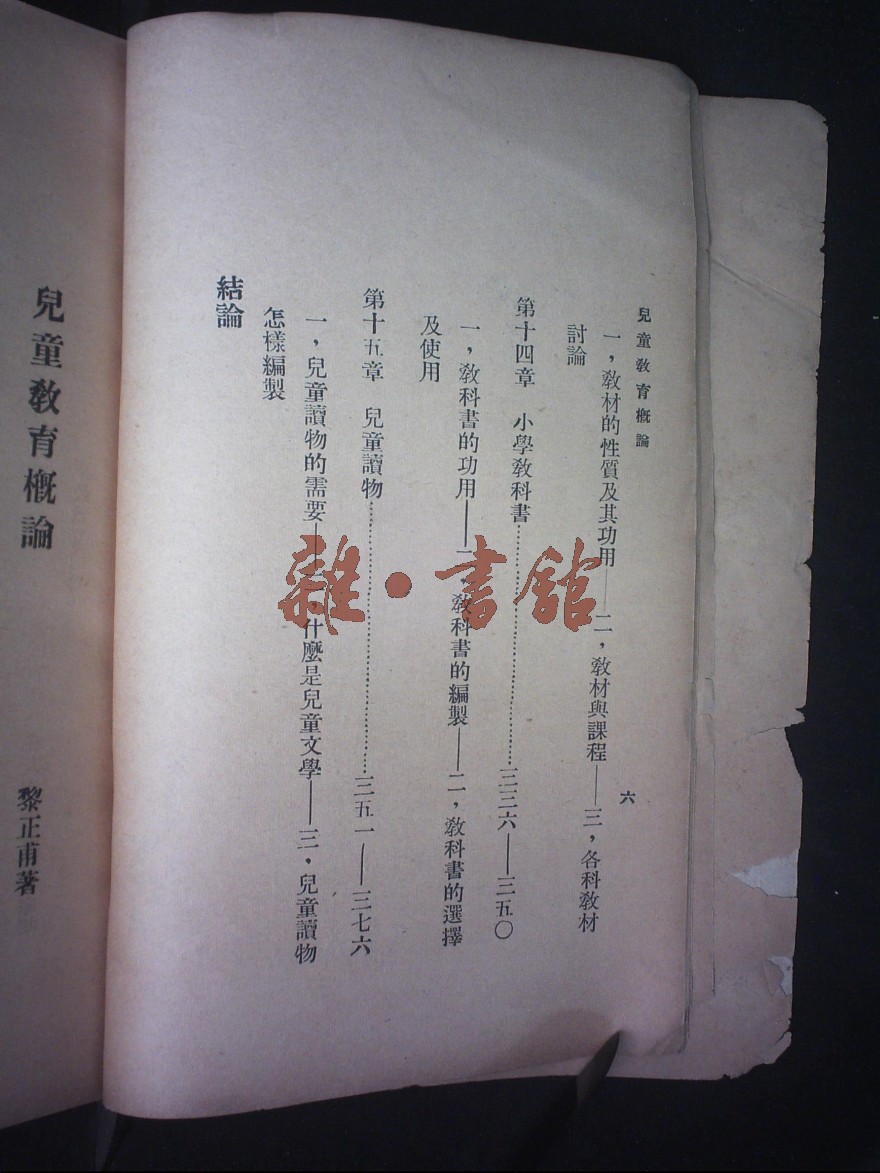 兒童敎育槪論
六
一，敎材的性質及其功用——二，敎材與課程——三，各科敎材
討論
第十四章　小學敎科書…………三三六——三五〇
一，敎科書的功用——二，敎科書的編製——二，敎科書的選擇
及使用
第十五章　兒童讀物…………三五一——三七六
一，兒童讀物的需要——，什麼是兒童文學——三．兒童讀物
怎樣編製
結論
兒童敎育槪論
黎正甫著
雜·書館